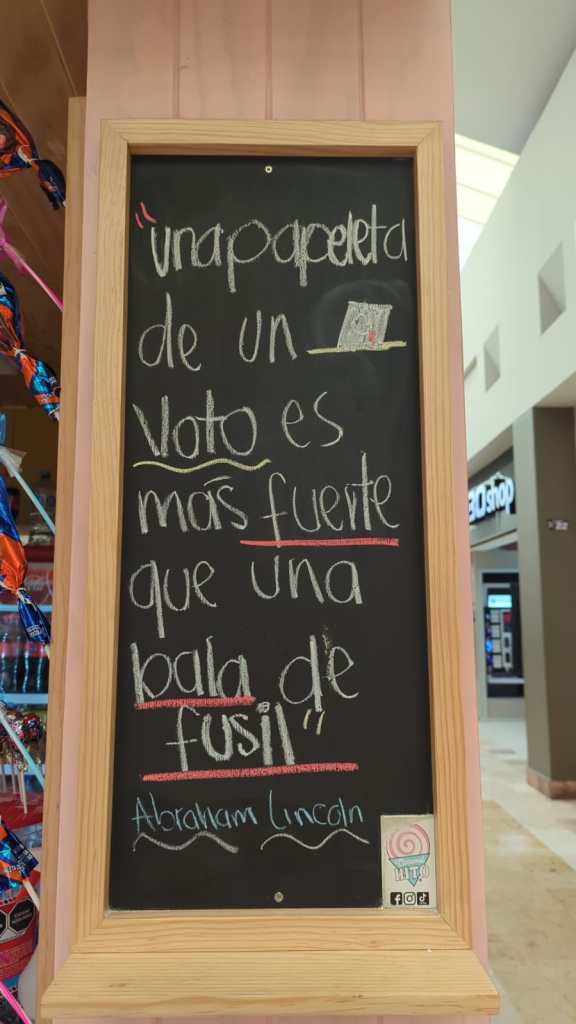 "una papeleta
de un
voto es
más fuerte
que una
bala de
fusil"
Abraham Lincoln
HITO
shop